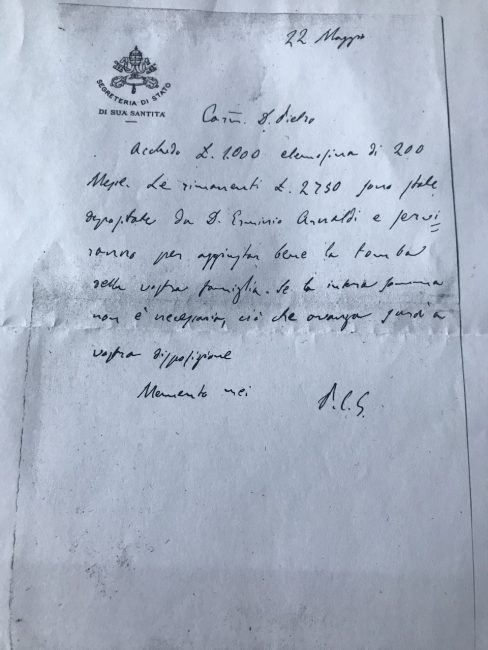 22 Maggio
SEGRETERIA DI STATO
DI SUA SANTITÀ
Carm. D. Pietro
Accludo £. 1.000 elemosina di 200
Messe. Le rimanenti £. 2750 sono state
depositate da D. Erminio Arnaldi e servi
ranno per aggiustar bene la tomba
della vostra famiglia. Se la intera somma
non è necessaria, ciò che avanza sarà a
vostra disposizione
Memento mei
P. C. G.